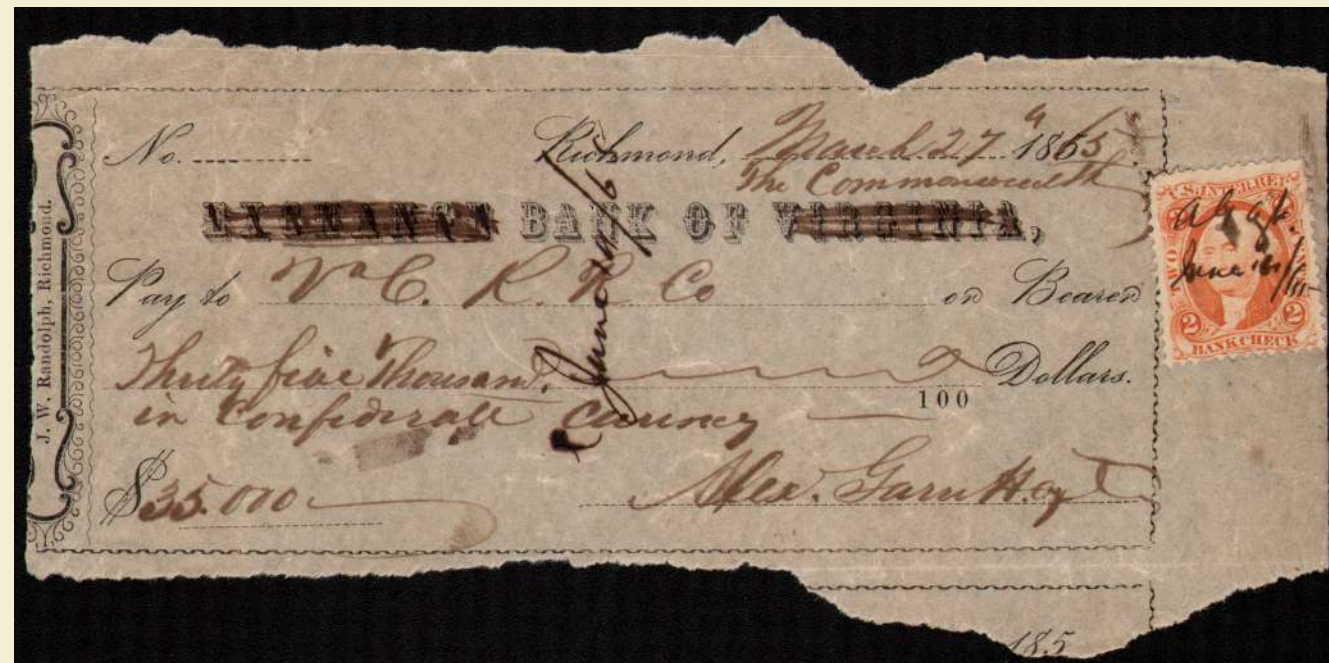 J. W. Randolph, Richmond.
No. Richmond, March 27 1865
The Commonwealth
EXCHANGE BANK OF VIRGINIA,
Pay to Va C. R. R Co or Bearer
Thirty five Thousand, Dollars.
100
in Confederate
$35.000 Alex. Garrett
June 65
U.S. INTER. REV.
TWO CENTS
A G
June 16/65
2 2
BANK CHECK
185